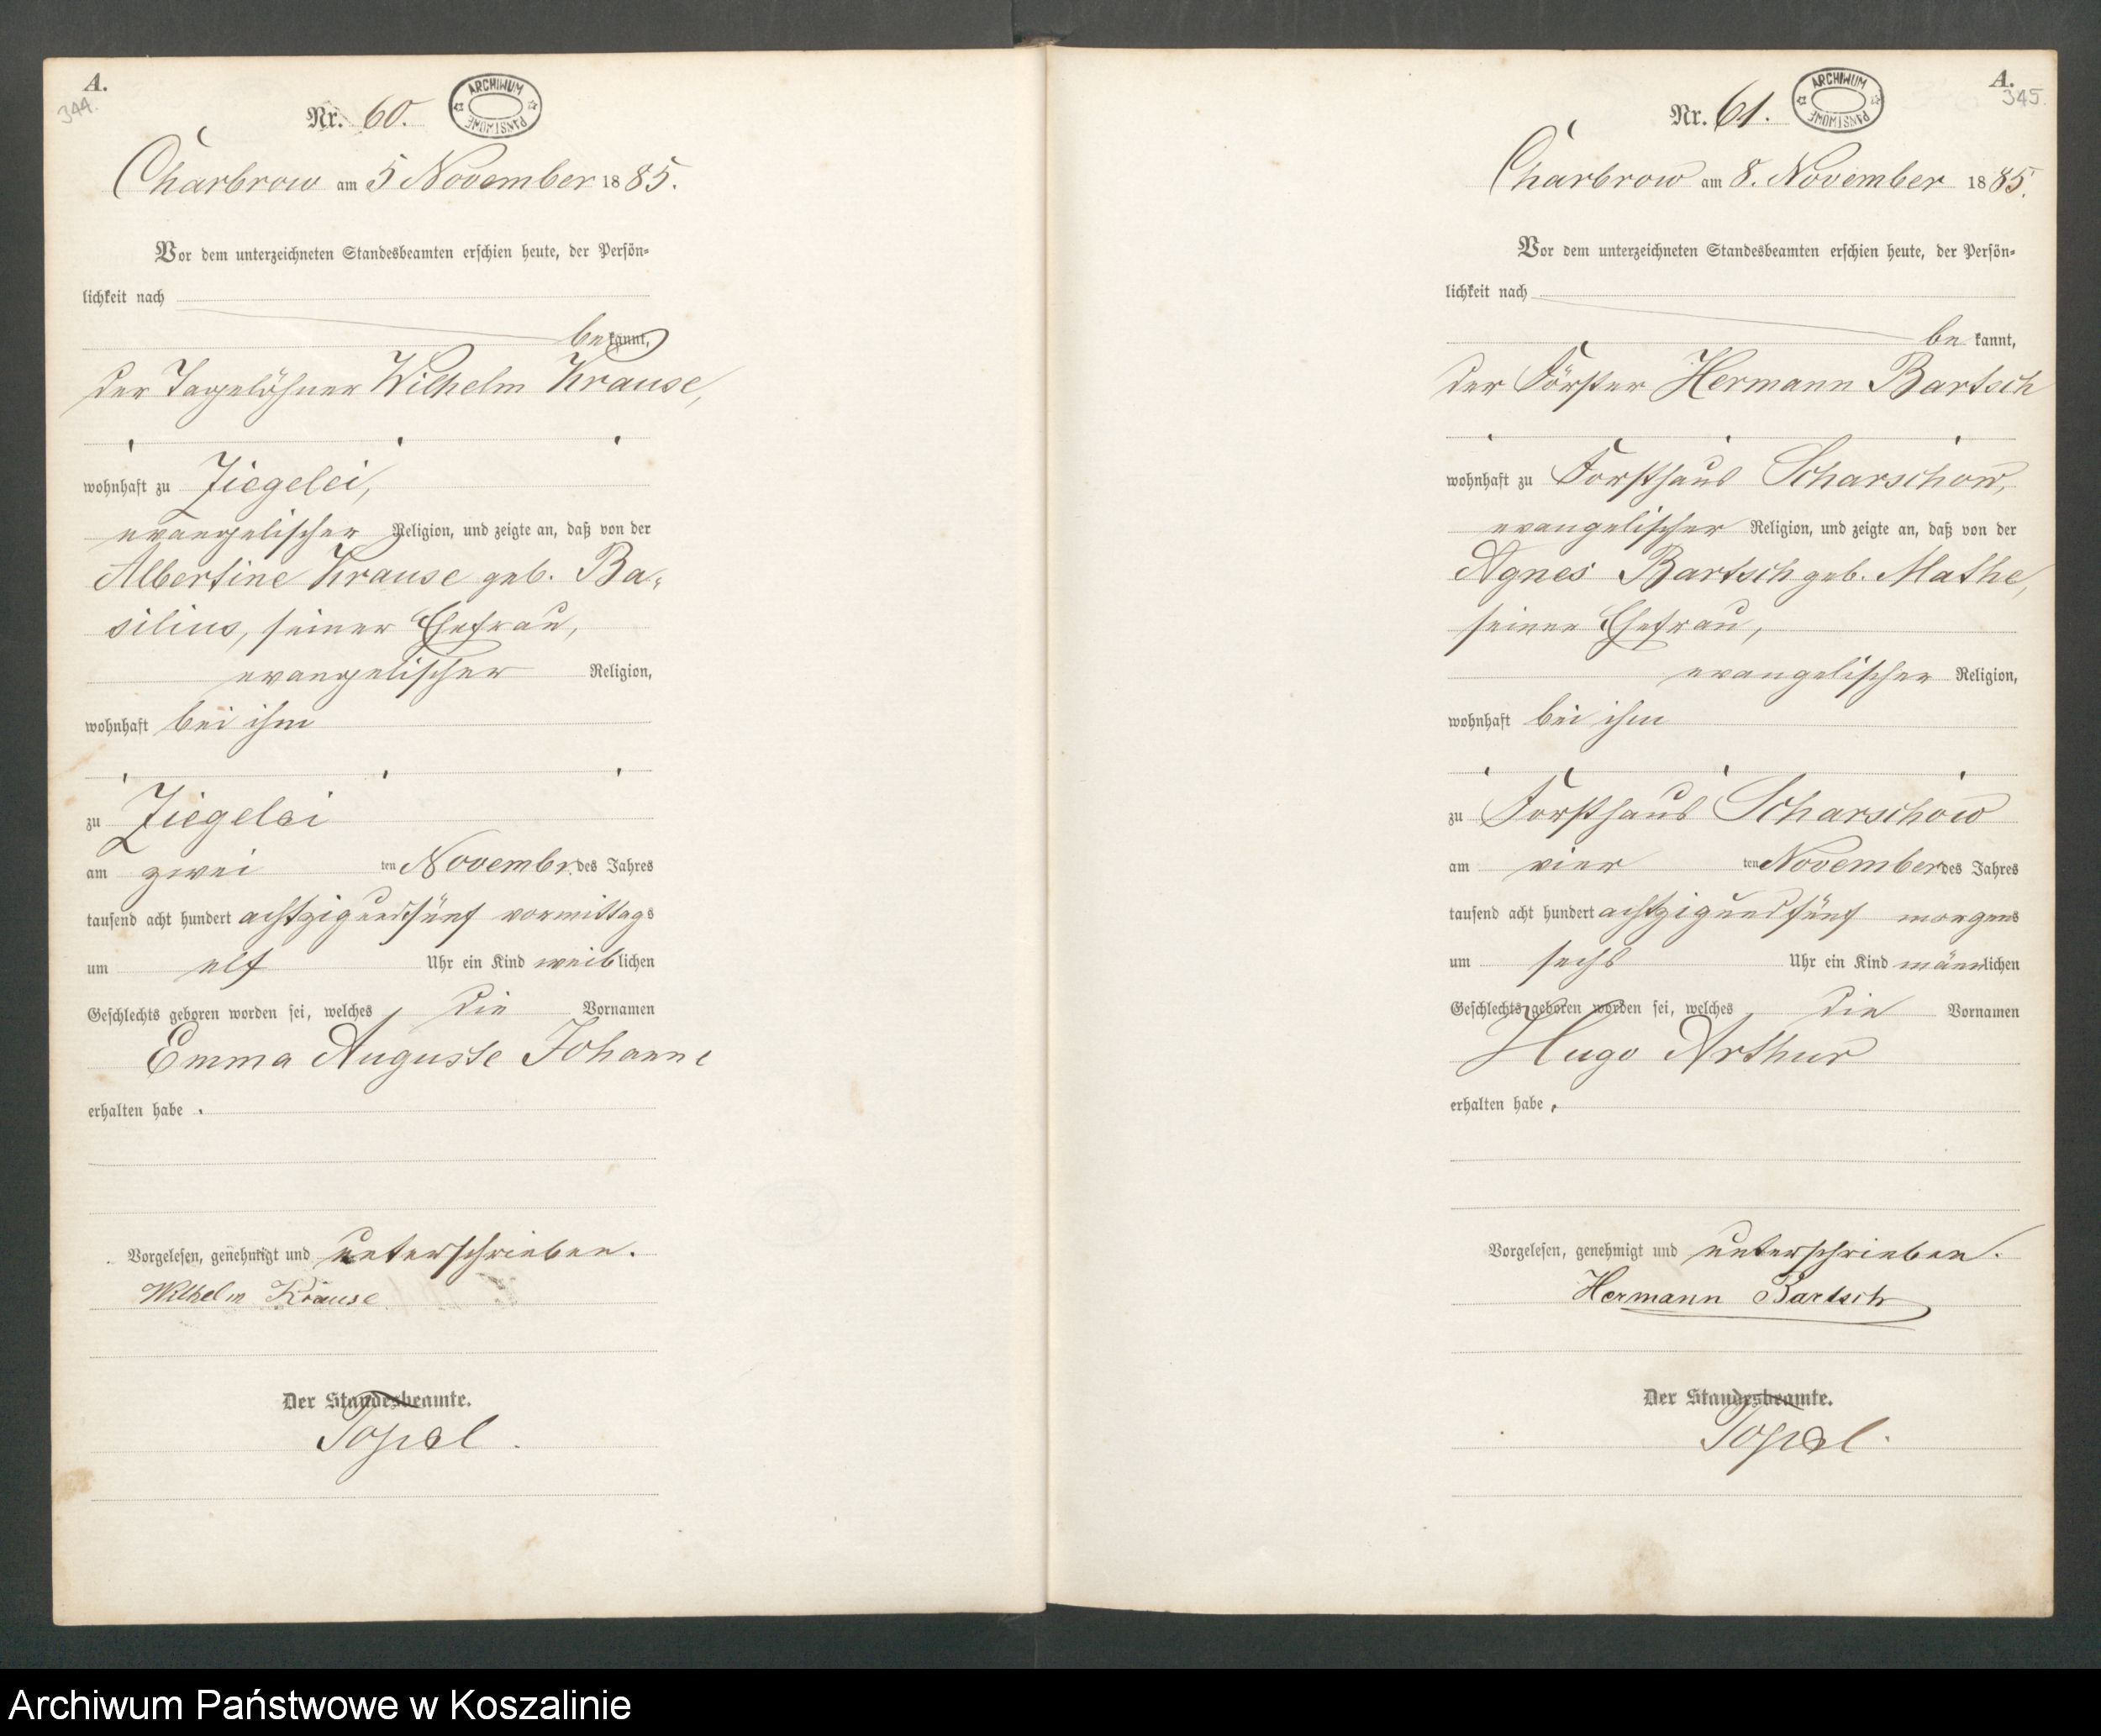 A.
344.
Nr. 60.
ARCHIWUM PAŃSTWOWE
Charbrow am 5 November 1885.
Vor dem unterzeichneten Standesbeamten erschien heute, der Persön-
lichkeit nach
bekannt,
der Tagelöhner Wilhelm Krause,
wohnhaft zu Ziegelei,
evangelischer Religion, und zeigte an, daß von der
Albertine Krause geb. Ba-
silius, seiner Ehefrau,
evangelischer Religion,
wohnhaft bei ihm
zu Ziegelei
am zwei ten Novembr. des Jahres
tausend acht hundert achtzigundfünf vormittags
um elf Uhr ein Kind weiblichen
Geschlechts geboren worden sei, welches die Vornamen
Emma Auguste Johanne
erhalten habe.
Vorgelesen, genehmigt und unterschrieben.
Wilhelm Krause
Der Standesbeamte.
A.
345.
Nr. 61.
ARCHIWUM PAŃSTWOWE
Charbrow am 8. November 1885.
Vor dem unterzeichneten Standesbeamten erschien heute, der Persön-
lichkeit nach
bekannt,
der Förster Hermann Bartsch
wohnhaft zu Forsthaus Scharschow,
evangelischer Religion, und zeigte an, daß von der
Agnes Bartsch geb. Mathe,
seiner Ehefrau,
evangelischer Religion,
wohnhaft bei ihm
zu Forsthaus Scharschow
am vier ten November des Jahres
tausend acht hundert achtzigundfünf morgens
um sechs Uhr ein Kind männlichen
Geschlechts geboren worden sei, welches die Vornamen
Hugo Arthur
erhalten habe.
Vorgelesen, genehmigt und unterschrieben.
Hermann Bartsch
Der Standesbeamte.
Archiwum Państwowe w Koszalinie